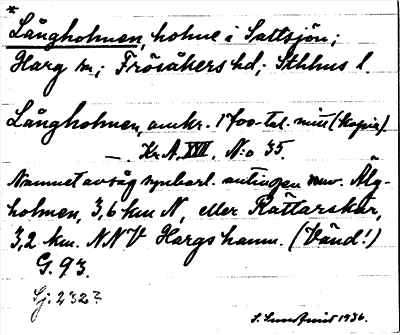 *
Långholmen, holme i Saltsjön;
Harg sn; Frösåkers hd; Sthlms l.
Långholmen, omkr. 1700-tal. mitt (kopia).
— Kr. A. XVII. N:o 35.
Namnet avsåg synbarl. antingen nuv. Älg-
holmen, 3,6 km N, eller Rättarskär,
3,2 km. NNV Hargshamn. (Vänd!)
G. 93.
Sj. 232?
S. Sundqvist 1936.